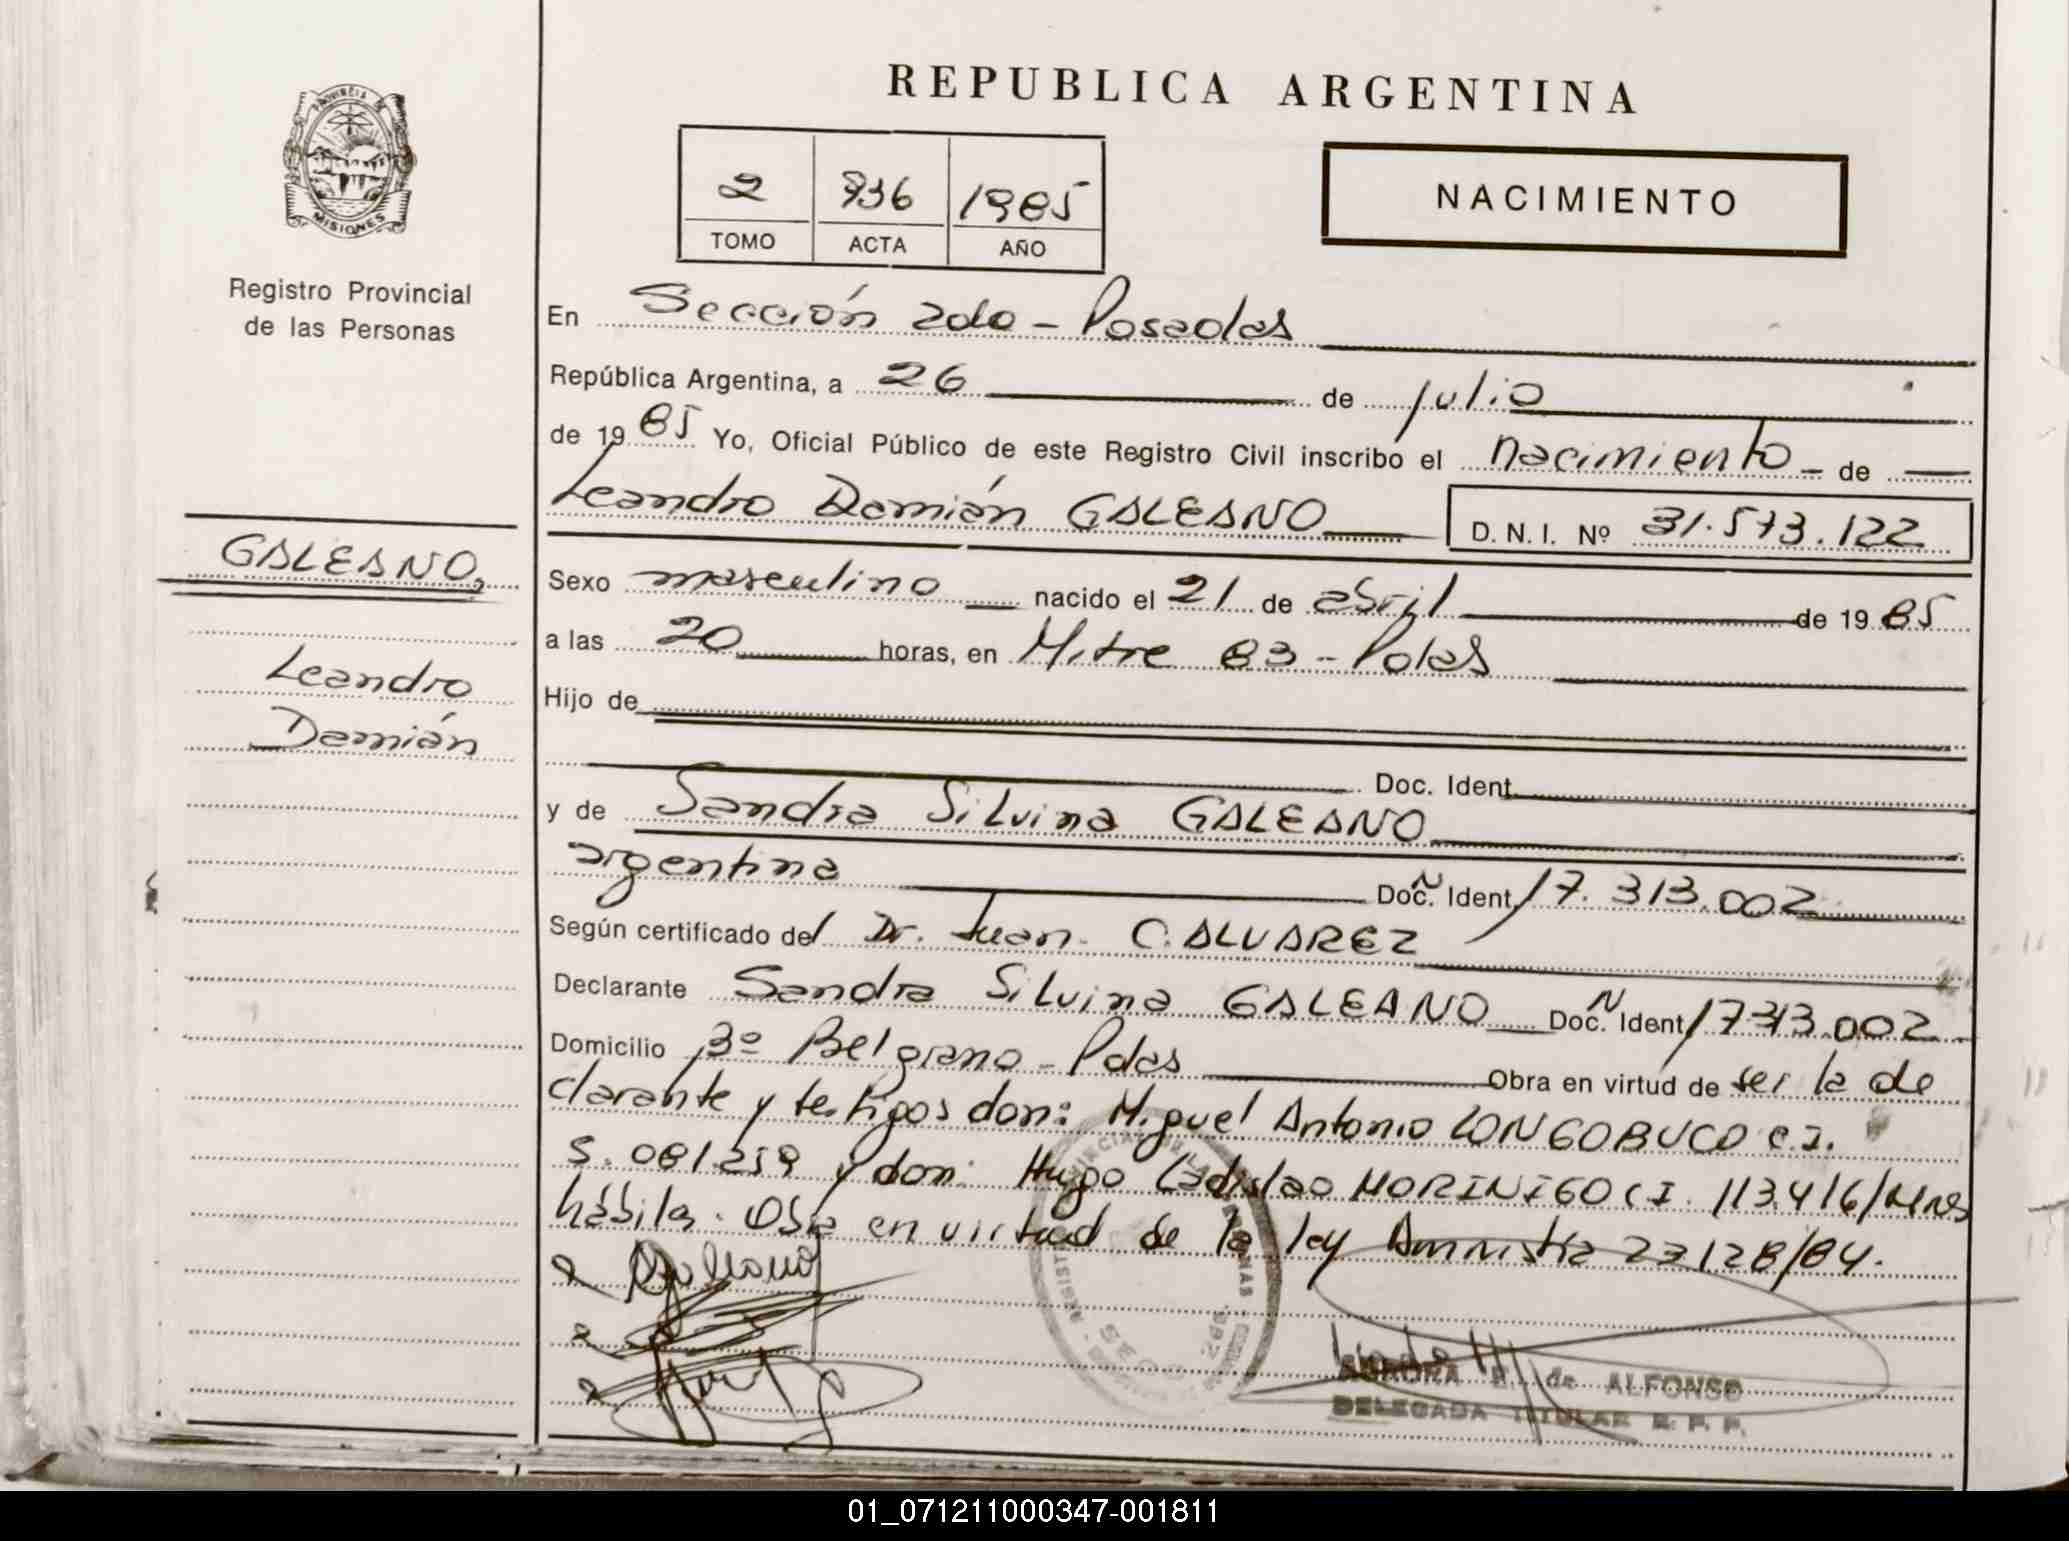 REPUBLICA ARGENTINA
PROVINCIA DE
MISIONES
Registro Provincial
de las Personas
2 936 1985
TOMO ACTA AÑO
NACIMIENTO
En Sección 2da - Posadas
República Argentina, a 26 de julio
de 1985 Yo, Oficial Público de este Registro Civil inscribo el nacimiento - de
Leandro Damián GALEANO D. N. I. Nº 31.573.122
GALEANO,
Leandro
Damián
Sexo masculino nacido el 21 de abril de 1985
a las 20 horas, en Mitre 83 - Pdas
Hijo de
Doc. Ident.
y de Sandra Silvina GALEANO
argentina Doc. N Ident. 17.313.002
Según certificado del Dr. Juan C. ALVAREZ
Declarante Sandra Silvina GALEANO Doc. N Ident. 17313.002
Domicilio Bº Belgrano - Pdas Obra en virtud de ser la de
clarante y testigos don: Miguel Antonio LONGOBUCO C.I.
5.081.259 y don: Hugo Ladislao MORINIGO C.I. 113.416/Mns
hábiles. Obra en virtud de la ley Amnistia 23128/84.
AURORA E. de ALFONSO
DELEGADA TITULAR R. P. P.
01_071211000347-001811